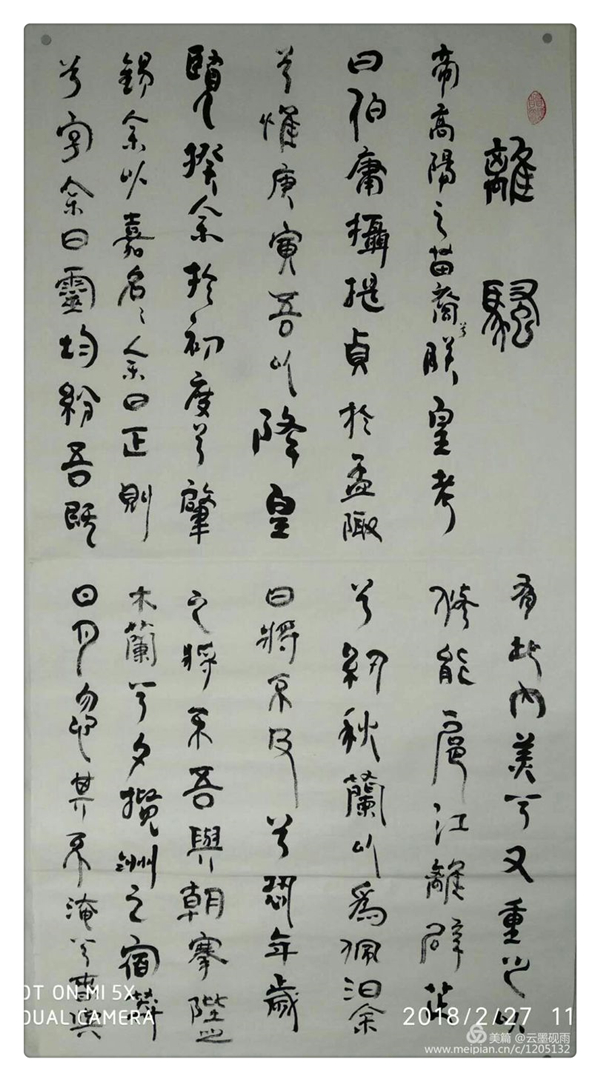 離騷
帝高陽之苗裔兮朕皇考
曰伯庸攝提貞於孟陬
兮惟庚寅吾以降皇
覽揆余於初度兮肇
錫余以嘉名〻余曰正則
兮字余曰靈均紛吾既
有此內美兮又重之以
修能扈江離辟芷
兮紉秋蘭以為佩汩余
曰將不及兮恐年歲
之將不吾與朝搴陛之
木蘭兮夕攬洲之宿莽
日月忽其不淹兮春與
OT ON MI 5X
DUAL CAMERA
2018/2/27 11
美篇 @云墨砚雨
www.meipian.cn/c/1205132